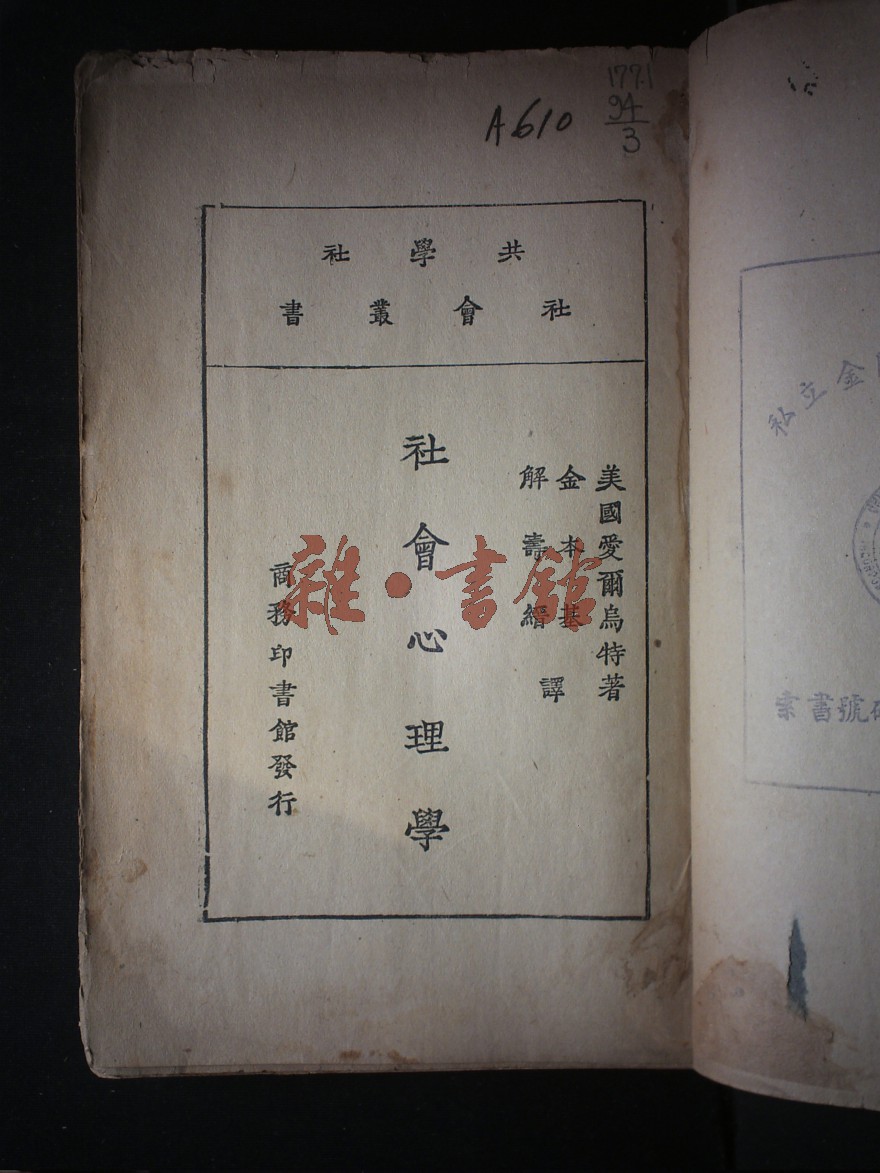 A610
177.1
94
3
共學社
社會叢書
美國愛爾烏特著
金本基
解壽縉
譯
社會心理學
商務印書館發行
雜·書館
私立金
號書索